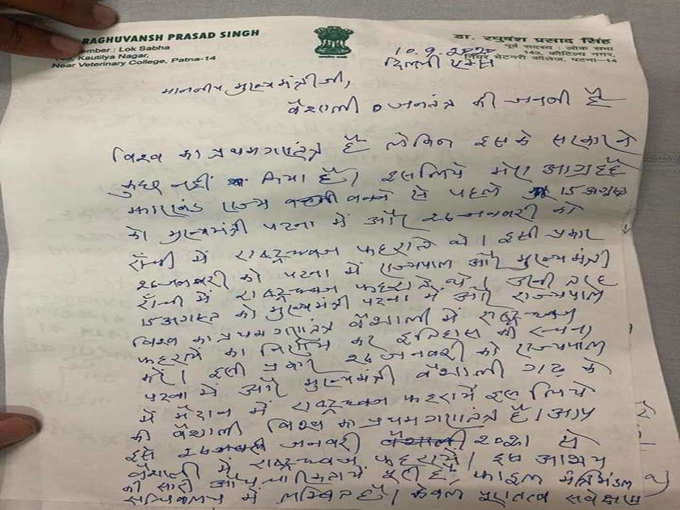 RAGHUVANSH PRASAD SINGH
Member : Lok Sabha
Kautilya Nagar,
Near Veterinary College, Patna-14
डा. रघुवंश प्रसाद सिंह
पूर्व सदस्य : लोक सभा
कौटिल्य नगर,
नियर वेटनरी कॉलेज, पटना-14
10.9.2020
दिल्ली एम्स
माननीय मुख्यमंत्री जी,
वैशाली जनतंत्र की जननी है
विश्व का प्रथम गणतंत्र है लेकिन इसमें सरकार ने
कुछ नहीं किया है। इसलिये मेरा आग्रह है
झारखंड राज्य बनने से पहले 15 अगस्त
को मुख्यमंत्री पटना में और 26 जनवरी को
राँची में राष्ट्रध्वज फहराते थे। इसी प्रकार
26 जनवरी को पटना में राज्यपाल और मुख्यमंत्री
राँची में राष्ट्रध्वज फहराते थे। उसी तरह
15 अगस्त को मुख्यमंत्री पटना में और राज्यपाल
विश्व का प्रथम गणतंत्र वैशाली में राष्ट्रध्वज
फहराने का निर्णय कर इतिहास की रचना
करें। इसी प्रकार 26 जनवरी को राज्यपाल
पटना में और मुख्यमंत्री वैशाली गढ़ के
मैदान में राष्ट्रध्वज फहरायें इस लिये
की वैशाली विश्व का प्रथम गणतंत्र है। आप
इसे 26 जनवरी 2021 से
वैशाली में राष्ट्रध्वज फहरायें। इस आशय
की सारी औपचारिकतायें पूरी हैं, फाइल मंत्रिमंडल
सचिवालय में लम्बित है। केवल पुरातत्व सर्वेक्षण